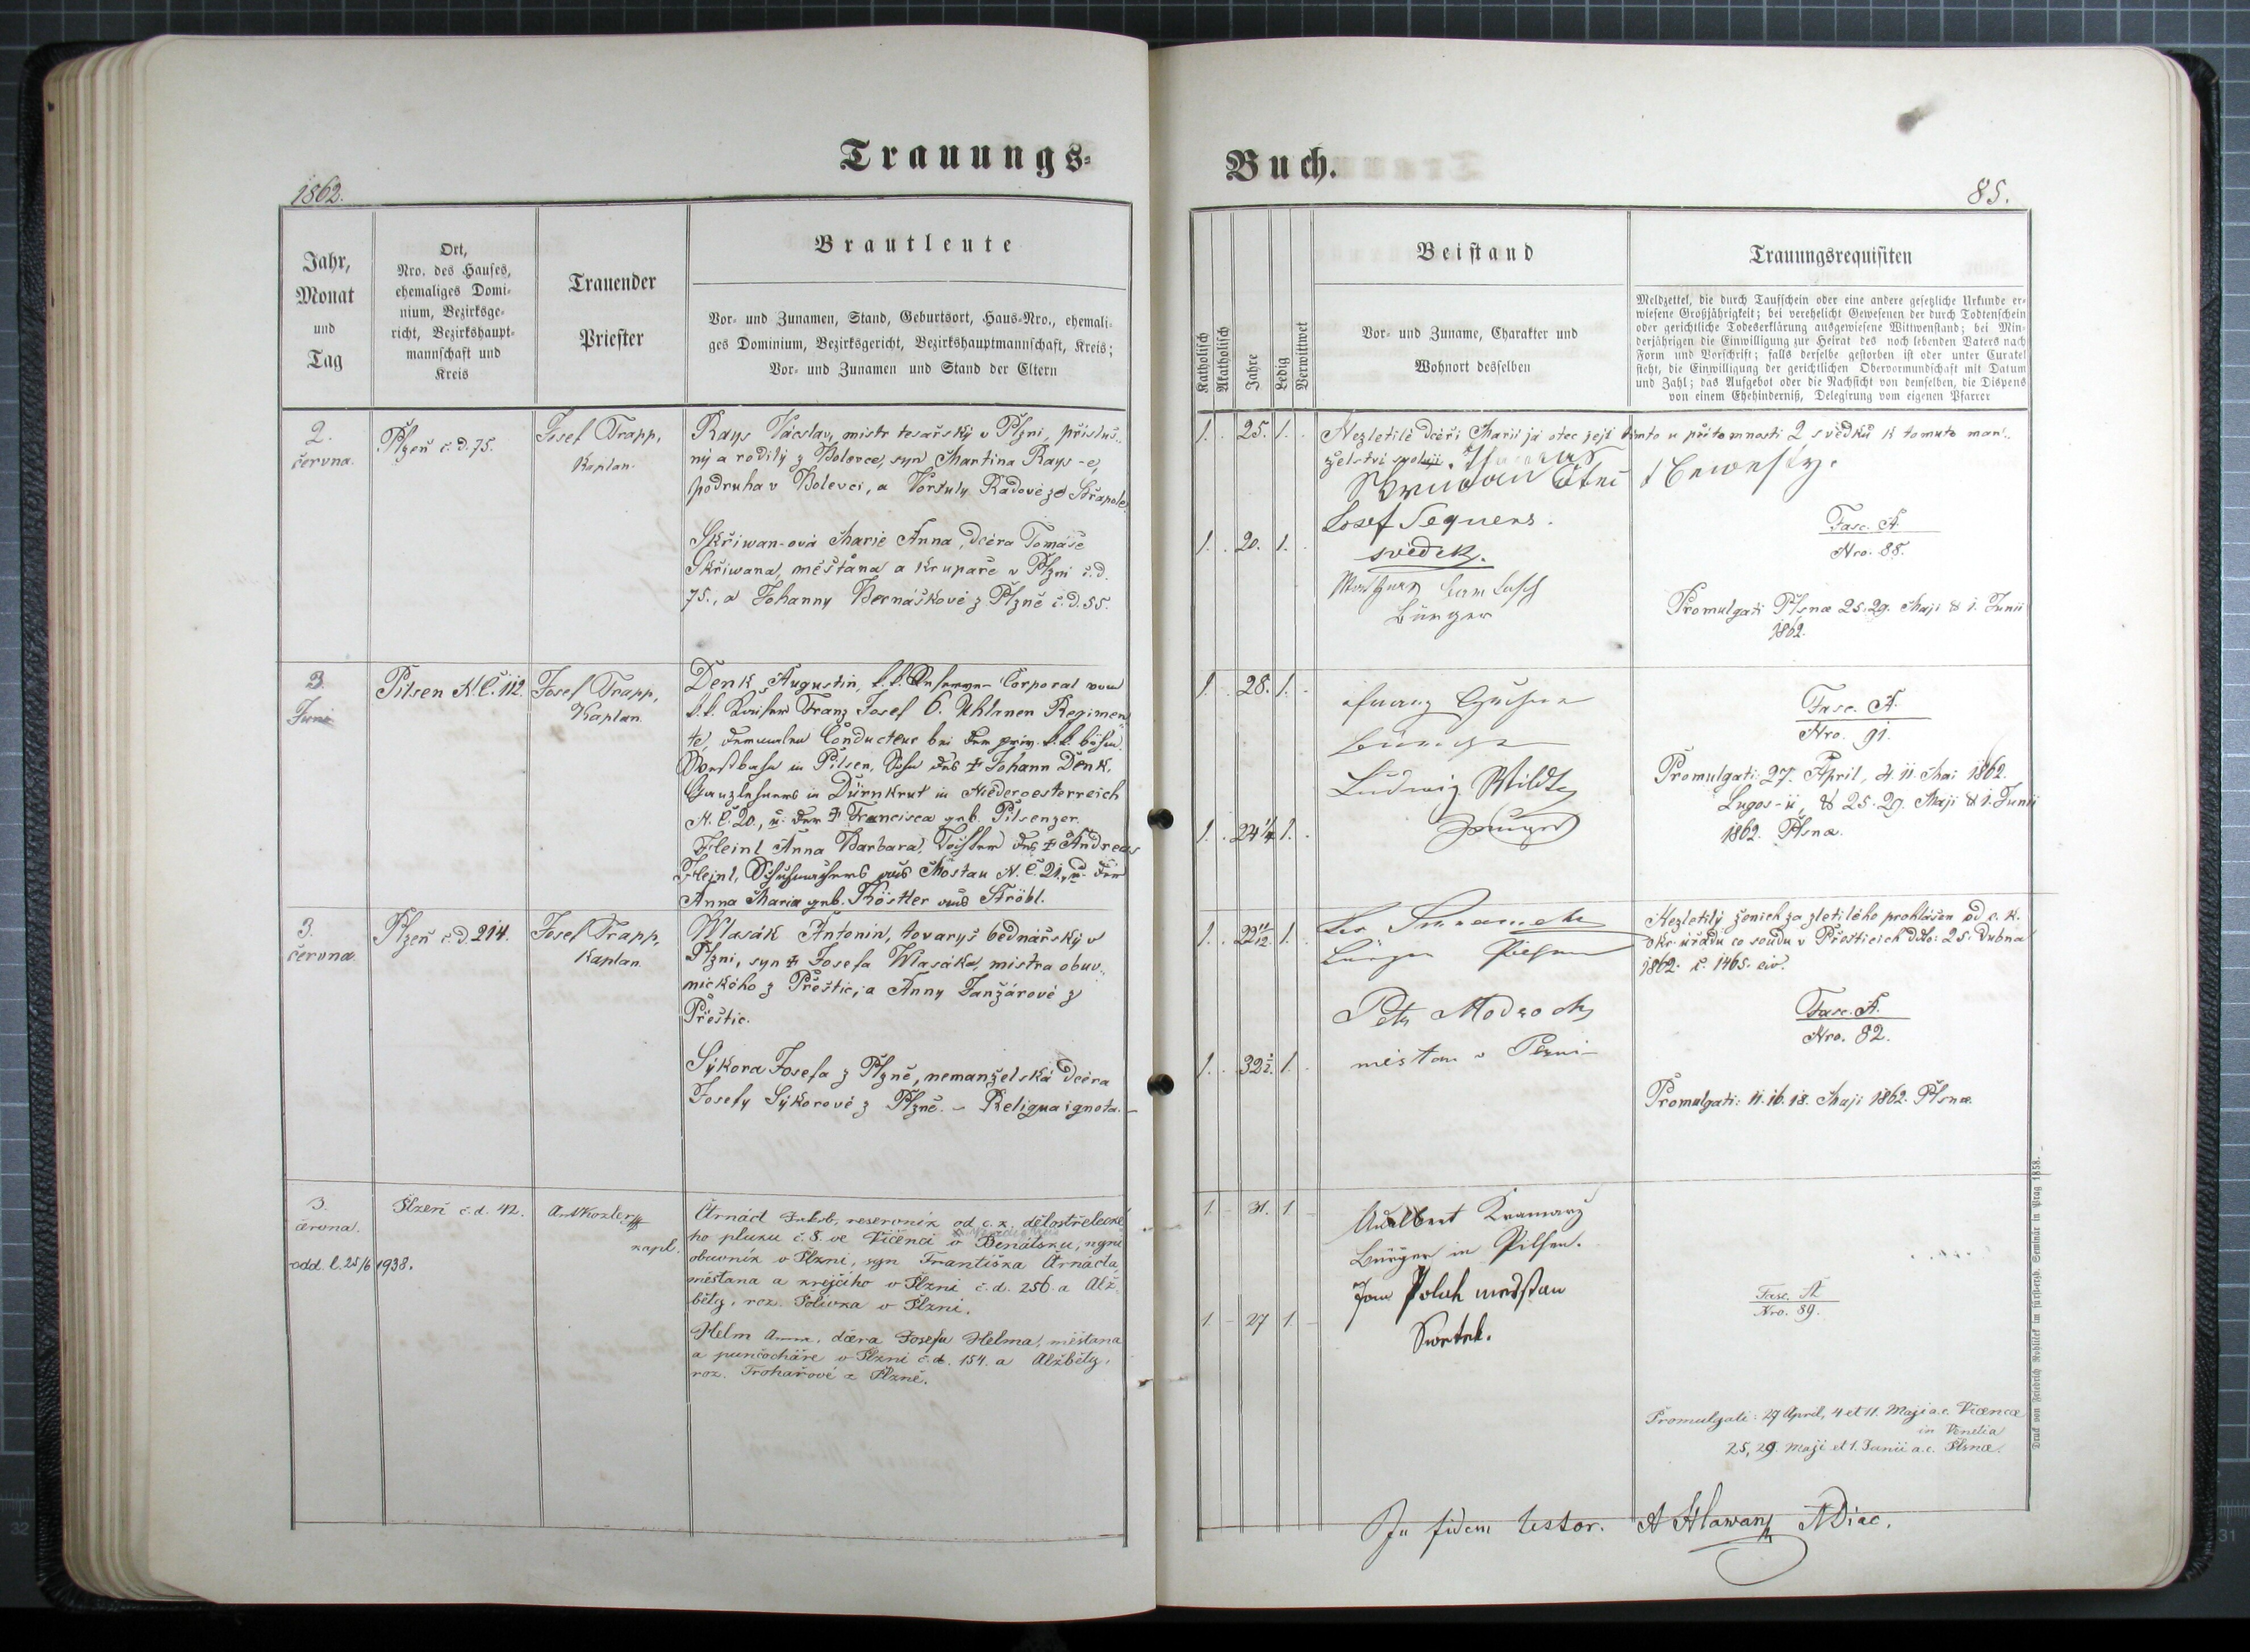 Trauungs-
Buch.
1862.
85.
Jahr,
Monat
und
Tag
Ort,
Nro. des Hauses,
ehemaliges Domi-
nium, Bezirksge-
richt, Bezirkshaupt-
mannschaft und
Kreis
Trauender
Priester
Brautleute
Vor- und Zunamen, Stand, Geburtsort, Haus-Nro., ehemali-
ges Dominium, Bezirksgericht, Bezirkshauptmannschaft, Kreis;
Vor- und Zunamen und Stand der Eltern
Katholisch
Akatholisch
Jahre
Ledig
Verwittwet
Beistand
Vor- und Zuname, Charakter und
Wohnort desselben
Trauungsrequisiten
Meldzettel, die durch Taufschein oder eine andere gesetzliche Urkunde er-
wiesene Großjährigkeit; bei verehelicht Gewesenen der durch Todtenschein
oder gerichtliche Todeserklärung ausgewiesene Wittwenstand; bei Min-
derjährigen die Einwilligung zur Heirat des noch lebenden Vaters nach
Form und Vorschrift; falls derselbe gestorben ist oder unter Curatel
steht, die Einwilligung der gerichtlichen Obervormundschaft mit Datum
und Zahl; das Aufgebot oder die Nachsicht von demselben, die Dispens
von einem Ehehinderniß, Delegirung vom eigenen Pfarrer
2.
června.
Plzeň č.d. 75.
Josef Trapp,
Kaplan.
Rays Václav, mistr tesařský v Plzni, přísluš-
ný a rodilý z Bolevce, syn Martina Rays-e,
podruha v Bolevci, a Voršuly Radové ze Střapole.
Skřiwan-ová Marie Anna, dcera Tomáše
Skřiwana, měšťana a krupaře v Plzni č.d.
75., a Johanny Bernáškové z Plzně č.d. 55.
1. 25. 1.
1. 20. 1.
Nezletilé dceři Marii já otec její tímto u přítomnosti 2 svědků k tomuto man-
želství svoluji.
Josef Sequens.
svědek.
Bürger
Fasc. A.
Nro. 88.
Promulgati Plsnæ 25. 29. Maji & 1. Junii
1862.
3.
Juni
Pilsen N.C. 112.
Josef Trapp,
Kaplan.
Denk Augustin, k.k. Reserve-Corporal vom
k.k. Kaiser Franz Josef 6. Uhlanen Regimen-
te, dermalen Conducteur bei der priv. k.k. böhm.
Westbahn in Pilsen, Sohn des † Johann Denk,
Ganzlehners in Dürnkrut in Niederoesterreich
N.C. 20., u. der † Francisca geb. Pilsenger.
Heinl Anna Barbara, Tochter des † Andreas
Heinl, Schuhmachers aus Mostau N.C. 21., u. der
Anna Maria geb. Köstler aus Ströbl.
1. 28. 1.
1. 24 1/4 1.
Franz
Ludwig Wildt
Fasc. A.
Nro. 91.
Promulgati: 27. April, 4. 11. Mai 1862.
Lugos-ii, & 25. 29. Maji & 1. Junii
1862. Plsnæ.
3.
června.
Plzeň č.d. 214.
Josef Trapp,
Kaplan.
Wlasák Antonín, tovaryš bednářský v
Plzni, syn † Josefa Wlasáka, mistra obuv-
nického z Přeštic, a Anny Janžárové z
Přeštic.
Sýkora Josefa z Plzně, nemanželská dcera
Josefy Sýkorové z Plzně. – Reliqua ignota. –
1. 22 11/12 1.
1. 32 1/2. 1.
Bürger Pilsen
Petr
Nezletilý ženich za zletilého prohlášen od c. k.
okr. úřadu co soudu v Přešticích dtto: 25. dubna
1862. č. 1465. civ.
Fasc. A.
Nro. 82.
Promulgati: 11. 16. 18. Maji 1862. Plsnæ.
3.
června.
odd. l. 25/6 1938.
Plzeň č.d. 42.
Ant Kozler
kapl.
Črnáct Jakob, reservník od c. k. dělostřelecké-
ho pluku č. 8. ve Vicenci v Benátsku, nyní
obuvník v Plzni, syn Františka Črnácta,
měšťana a krejčího v Plzni č.d. 256. a Alž-
běty, roz. Polívka v Plzni.
Helm Anna, dcera Josefa Helma, měšťana
a punčocháře v Plzni č.d. 154. a Alžběty,
roz. Trohařové z Plzně.
1 - 31. 1 -
1 - 27 1. -
Adalbert Kramarz
Bürger in Pilsen.
Jan Poluk
Swetek.
Fasc. A
Nro. 89.
Promulgati: 27 April, 4 et 11. Maji a.c. Vicencæ
in Venetia
25, 29. Maji et 1. Junii a.c. Plsnæ.
In fidem testor. A Hlawan ADiac.
Druck von Friedrich Rohliček im fürsterzb. Seminär in Prag 1858.